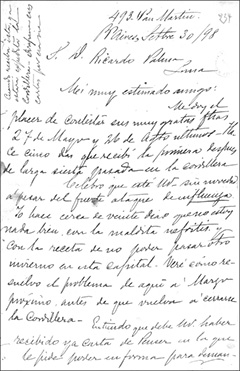 493. San Martin.
B. Aires Setbre 30/98
S. D. Ricardo Palma
Lima
Mi muy estimado amigo:
Me doy el
placer de contestar sus muy gratas
27 de Mayo y 26 de Agto últimos. Ha
ce cinco dias que recibí la primera después
de larga siesta pasada en la cordillera
Celebro que esté Ud. sin novedad
a pesar del fuerte ataque de influenza
Yo hace cerca de veinte dias que no estoy
nada bien con la maldita nefritis, y
con la receta de no poder pasar otro
invierno en esta capital. Veré como re
suelvo el problema de aqui a Marzo
próximo, antes de que vuelva a cerrarse
la Cordillera.
Entiendo que debe Ud. haber
recibido ya carta de Peuser en la que
le pide poder en forma para